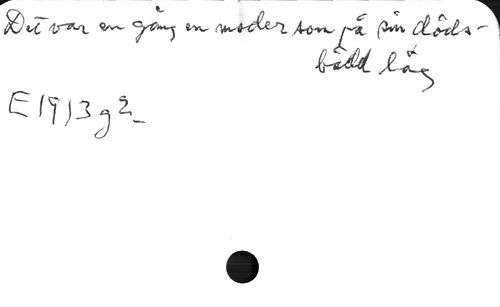 Det var en gång en moder som på sin döds-
bädd låg
E1913g2